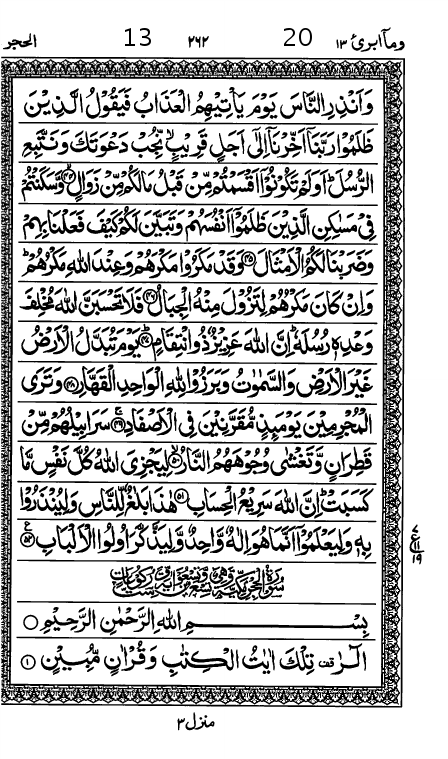 ومآ ابرئ ١٣ 20 ٢٦٢ 13 الحجر
وَاَنْذِرِ النَّاسَ يَوْمَ يَاْتِيْهِمُ الْعَذَابُ فَيَقُوْلُ الَّذِيْنَ
ظَلَمُوْا رَبَّنَآ اَخِّرْنَآ اِلٰٓى اَجَلٍ قَرِيْبٍۙ نُّجِبْ دَعْوَتَكَ وَنَتَّبِعِ
الرُّسُلَؕ اَوَلَمْ تَكُوْنُوْٓا اَقْسَمْتُمْ مِّنْ قَبْلُ مَالَكُمْ مِّنْ زَوَالٍۙ۝٤٤ وَّسَكَنْتُمْ
فِيْ مَسٰكِنِ الَّذِيْنَ ظَلَمُوْٓا اَنْفُسَهُمْ وَتَبَيَّنَ لَكُمْ كَيْفَ فَعَلْنَا بِهِمْ
وَضَرَبْنَا لَكُمُ الْاَمْثَالَ۝٤٥ وَقَدْ مَكَرُوْا مَكْرَهُمْ وَعِنْدَ اللّٰهِ مَكْرُهُمْؕ
وَاِنْ كَانَ مَكْرُهُمْ لِتَزُوْلَ مِنْهُ الْجِبَالُ۝٤٦ فَلَا تَحْسَبَنَّ اللّٰهَ مُخْلِفَ
وَعْدِهٖ رُسُلَهٗؕ اِنَّ اللّٰهَ عَزِيْزٌ ذُو انْتِقَامٍؕ۝٤٧ يَوْمَ تُبَدَّلُ الْاَرْضُ
غَيْرَ الْاَرْضِ وَالسَّمٰوٰتُ وَبَرَزُوْا لِلّٰهِ الْوَاحِدِ الْقَهَّارِ۝٤٨ وَتَرَى
الْمُجْرِمِيْنَ يَوْمَىِٕذٍ مُّقَرَّنِيْنَ فِي الْاَصْفَادِۚ۝٤٩ سَرَابِيْلُهُمْ مِّنْ
قَطِرَانٍ وَّتَغْشٰى وُجُوْهَهُمُ النَّارُۙ۝٥٠ لِيَجْزِيَ اللّٰهُ كُلَّ نَفْسٍ مَّا
كَسَبَتْؕ اِنَّ اللّٰهَ سَرِيْعُ الْحِسَابِ۝٥١ هٰذَا بَلٰغٌ لِّلنَّاسِ وَلِيُنْذَرُوْا
بِهٖ وَلِيَعْلَمُوْٓا اَنَّمَا هُوَ اِلٰهٌ وَّاحِدٌ وَّلِيَذَّكَّرَ اُولُوا الْاَلْبَابِ۝٥٢
ع
٧
١١
١٩
بِسْمِ اللّٰهِ الرَّحْمٰنِ الرَّحِيْمِ
الٓرٰ تِلْكَ اٰيٰتُ الْكِتٰبِ وَقُرْاٰنٍ مُّبِيْنٍ۝١
منزل ٣